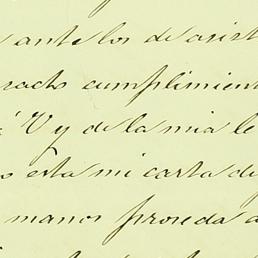 ante los de asist
racto cumplimien
V y de la mia le
esta mi carta de
manos proceda a